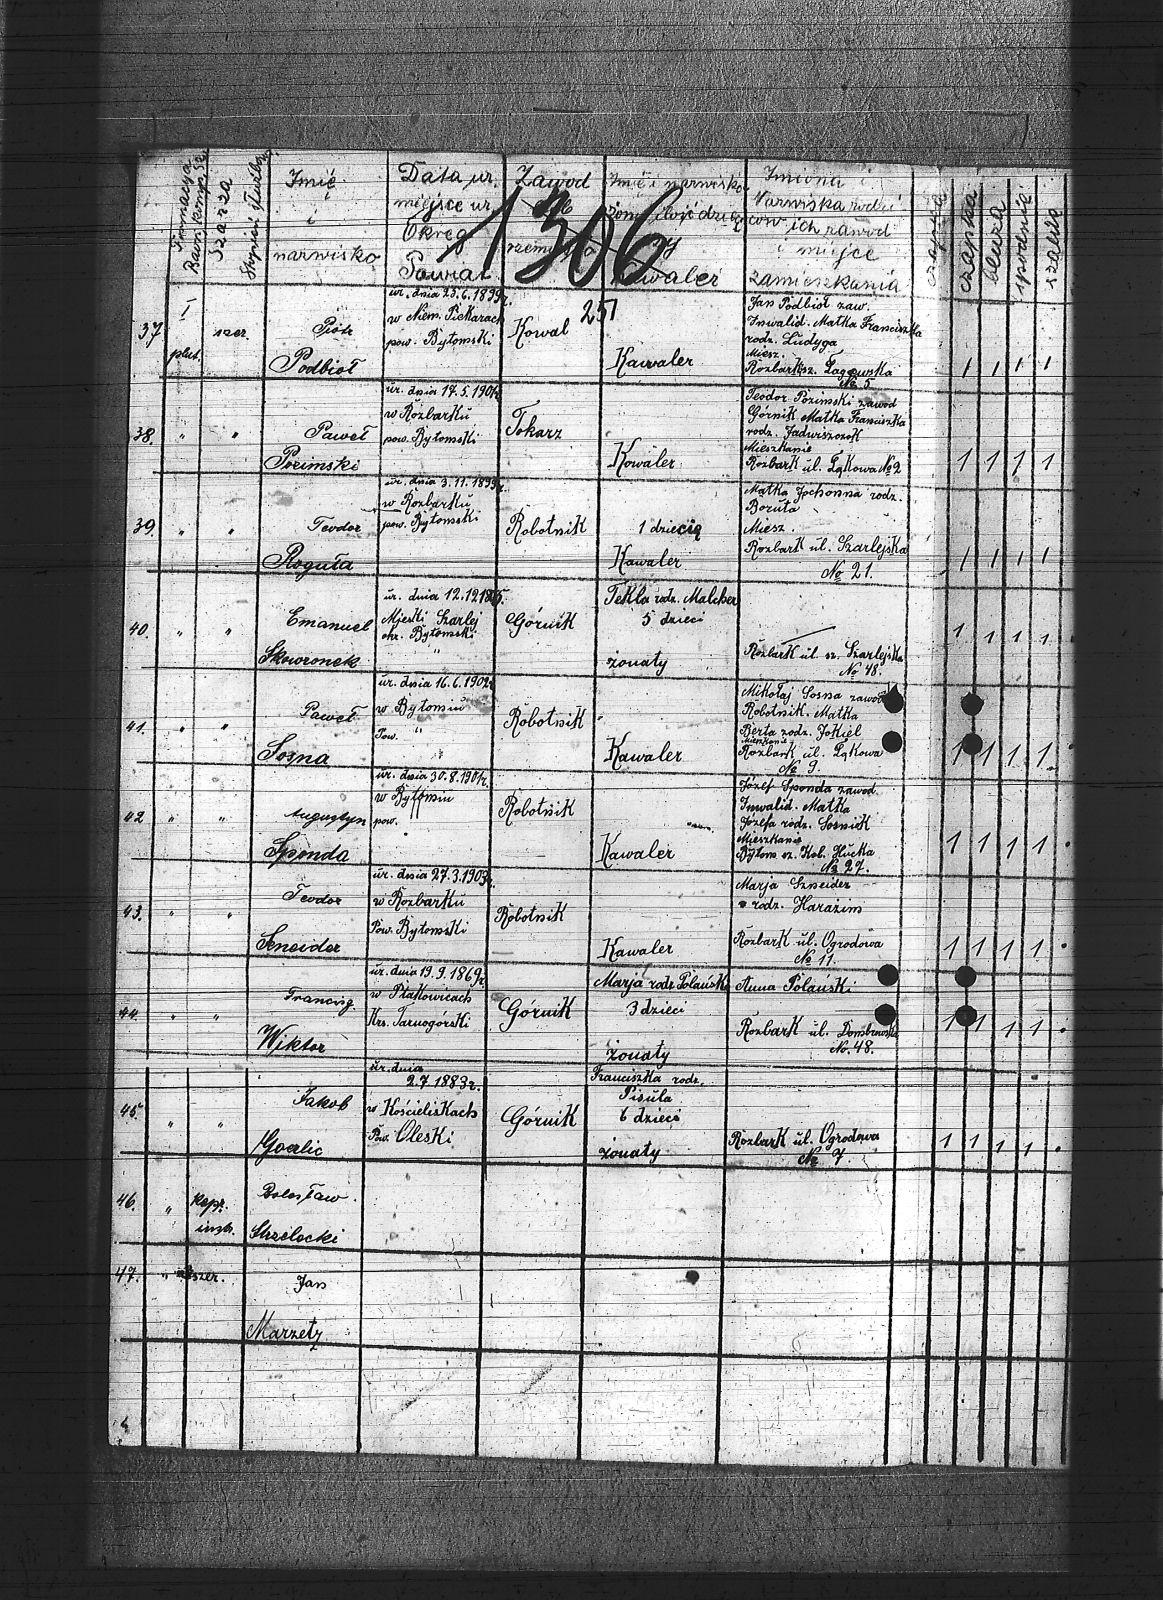 Formacya
Baon. komp.
Szarza
Stopień służbowy
Imię
i
nazwisko
Data ur.
miejsce ur.
Okręg
Powiat
Zawód
rzemiosło
Imię i nazwisko
żony ilość dzieci
Kawaler
Imiona i
Nazwiska rodzi
ców ich zawód
i miejsce
zamieszkania
czapka
bluza
spodnie
szalik
1306
251
37
I
plut.
szer.
Piotr
Podbioł
ur. dnia 23.6.1899r.
w Niem. Piekarach
pow. Bytomski
Kowal
Kawaler
Jan Podbioł zaw.
Inwalid. Matka Franciszka
rodz. Ludyga
Miesz.
Rozbark sz. Łagewska
No 5
1 1 1 1
38.
" "
Paweł
Pozimski
ur. dnia 17.5.1901r.
w Rozbarku
pow. Bytomski
Tokarz
Kowaler
Teodor Pozimski zawod
Górnik Matka Franciszka
rodz. Jadwiszczok
Mieszkanie
Rozbark ul. Łąkowa No 2
1 1 1 1
39.
" "
Teodor
Roguła
ur. dnia 3.11.1899r.
w Rozbarku
pow. Bytomski
Robotnik
1 dziecię
Kawaler
Matka Jochanna rodz.
Boruta
Miesz.
Rozbark ul. Szarlejska
No 21.
1 1 1 1
40.
" "
Emanuel
Skowronek
ur. dnia 12.12.18
Miejski Szarlej
okr. Bytomski
"
Górnik
Tekla rodz. Malcher
5 dzieci
żonaty
Rozbark ul. sz. Szarlejska
No 48.
1 1 1 1
41.
" "
Paweł
Sosna
ur. dnia 16.6.1902r.
w Bytomiu
Pow. "
Robotnik
Kawaler
Mikołaj Sosna zawod
Robotnik. Matka
Berta rodz. Jokiel
Mieszkanie
Rozbark ul. Łąkowa
No 9.
1 1 1 1
42
" "
Augustyn
Sponda
ur. dnia 30.8.1901r.
w Bytomiu
pow.
Robotnik
Kawaler
Józef Sponda zawod
Inwalid. Matka
Józefa rodz. Sosnick
Mieszkanie
Bytom sz. Kol. Hucka
No 27.
1 1 1 1
43.
" "
Teodor
Sneider
ur. dnia 27.3.1903r.
w Rozbarku
Pow. Bytomski
Robotnik
Kawaler
Marja Szneider
rodz. Harazim
Rozbark ul. Ogrodowa
No 11.
1 1 1 1
44.
" "
Francisg.
Wiktor
ur. dnia 19.9.1869r.
w Ptakowicach
Krs. Tarnogórski
Górnik
Marja rodz Polański
3 dzieci
żonaty
Anna Polański
Rozbark ul. Dombrowska
No. 48.
1 1 1 1
45.
" "
Jakob
Goerlic
ur. dnia
2.7 1883r.
w Kościeliskach
Pow. Oleski
Górnik
Franciszka rodz.
Pisula
6 dzieci
żonaty
Rozbark ul. Ogrodowa
No 7.
1 1 1 1
46.
"
Kapr.
instr.
Bolesław
Strzelecki
47.
"
szer.
Jan
Marzetz